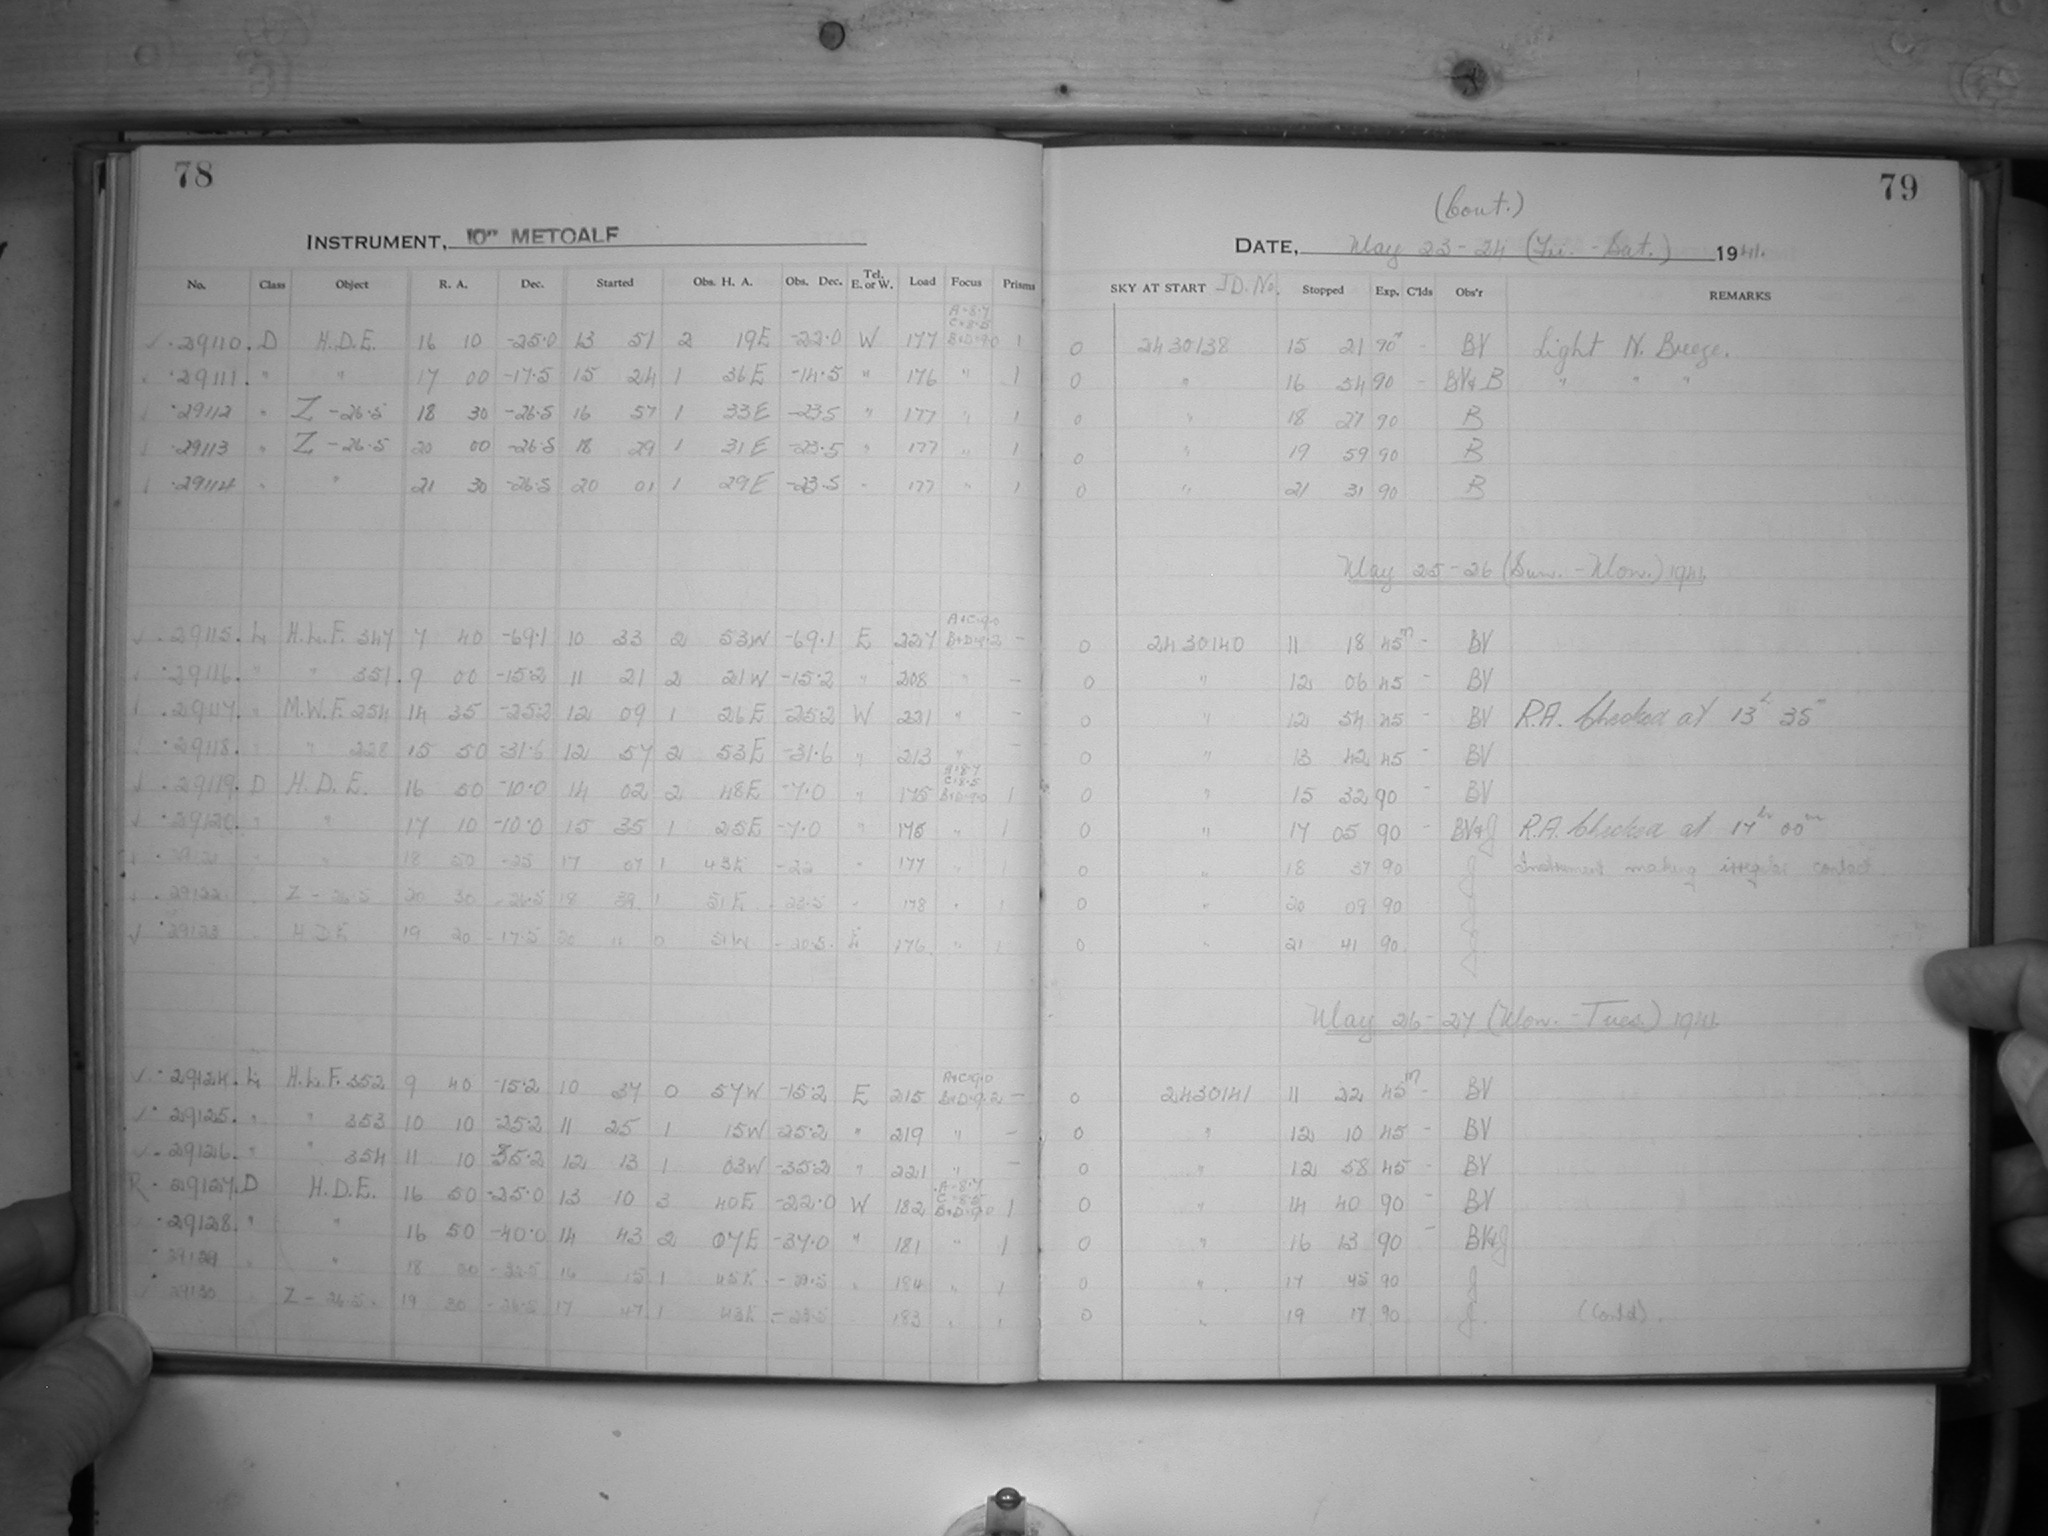 78
INSTRUMENT, 10" METCALF
No. Class Object R. A. Dec. Started Obs. H. A. Obs. Dec. Tel. E. or W. Load Focus Prisms
A=8.7
C=8.5
√ .29110. D H.D.E. 16 10 -25.0 13 51 2 19E -22.0 W 177 B+D=9.0 1
.29111. " " 17 00 -17.5 15 24 1 36E -14.5 " 176 " 1
√ .29112 " Z -26.5 18 30 -26.5 16 57 1 33E -23.5 " 177 " 1
√ .29113 " Z -26.5 20 00 -26.5 18 29 1 31E -23.5 " 177 " 1
√ .29114 " " 21 30 -26.5 20 01 1 29E -23.5 " 177 " 1
A+C=9.0
√ .29115. L H.L.F. 347 7 40 -69.1 10 33 2 53W -69.1 E 227 B+D=9.2 -
.29116. " " 351. 9 00 -15.2 11 21 2 21W -15.2 " 208 " -
.29117. " M.W.F. 254 14 35 -25.2 12 09 1 26E -25.2 W 221 " -
.29118. " " 228 15 50 -31.6 12 57 2 53E -31.6 " 213 " -
A=8.7
C=8.5
√ .29119. D H.D.E. 16 50 -10.0 14 02 2 48E -7.0 " 175 B+D=9.0 1
.29120. " " 17 10 -10.0 15 35 1 25E -7.0 " 176 " 1
29121 " " 18 50 -25 17 07 1 43E -22 " 177 " 1
.29122 Z -26.5 20 30 -26.5 18 39 1 51E -23.5 " 178 " 1
√ .29123 H D E 19 20 -17.5 20 11 0 51W -20.5 E 176 " 1
A+C=9.0
√ .29124. L H.L.F. 352 9 40 -15.2 10 37 0 57W -15.2 E 215 B+D=9.2 -
√ .29125. " " 353 10 10 -25.2 11 25 1 15W -25.2 " 219 " -
√ .29126. " " 354 11 10 -35.2 12 13 1 03W -35.2 " 221 " -
A=8.7
C=8.5
R. 29127. D H.D.E. 16 50 -25.0 13 10 3 40E -22.0 W 182 B+D=9.0 1
.29128. " " 16 50 -40.0 14 43 2 07E -37.0 " 181 " 1
29129 " " 18 00 16 15 1 45E " 184 " 1
29130 Z -26.5. 19 30 -26.5 17 47 1 43E -23.5 183 " 1
79
(Cont.)
DATE, May 23-24 (Fri. - Sat.) 1941.
SKY AT START J.D. No. Stopped Exp. C'lds Obs'r REMARKS
0 2430138 15 21 90m - BV Light N. Breeze.
0 " 16 54 90 - BV&B " " "
0 " 18 27 90 B
0 " 19 59 90 B
0 " 21 31 90 B
May 25-26 (Sun. - Mon.) 1941.
0 2430140 11 18 45m - BV
0 " 12 06 45 - BV
0 " 12 54 45 - BV R.A. Checked at 13h 35m
0 " 13 42 45 - BV
0 " 15 32 90 - BV
0 " 17 05 90 - BV&J R.A. Checked at 17h 00m
0 " 18 37 90 J Instrument making irregular contact.
0 " 20 09 90 J
0 " 21 41 90. J
May 26-27 (Mon. - Tues.) 1941.
0 2430141 11 22 45m - BV
0 " 12 10 45 - BV
0 " 12 58 45 - BV
0 " 14 40 90 - BV
0 " 16 13 90 - BV&J
0 " 17 45 90 J
0 " 19 17 90 J. (Contd).